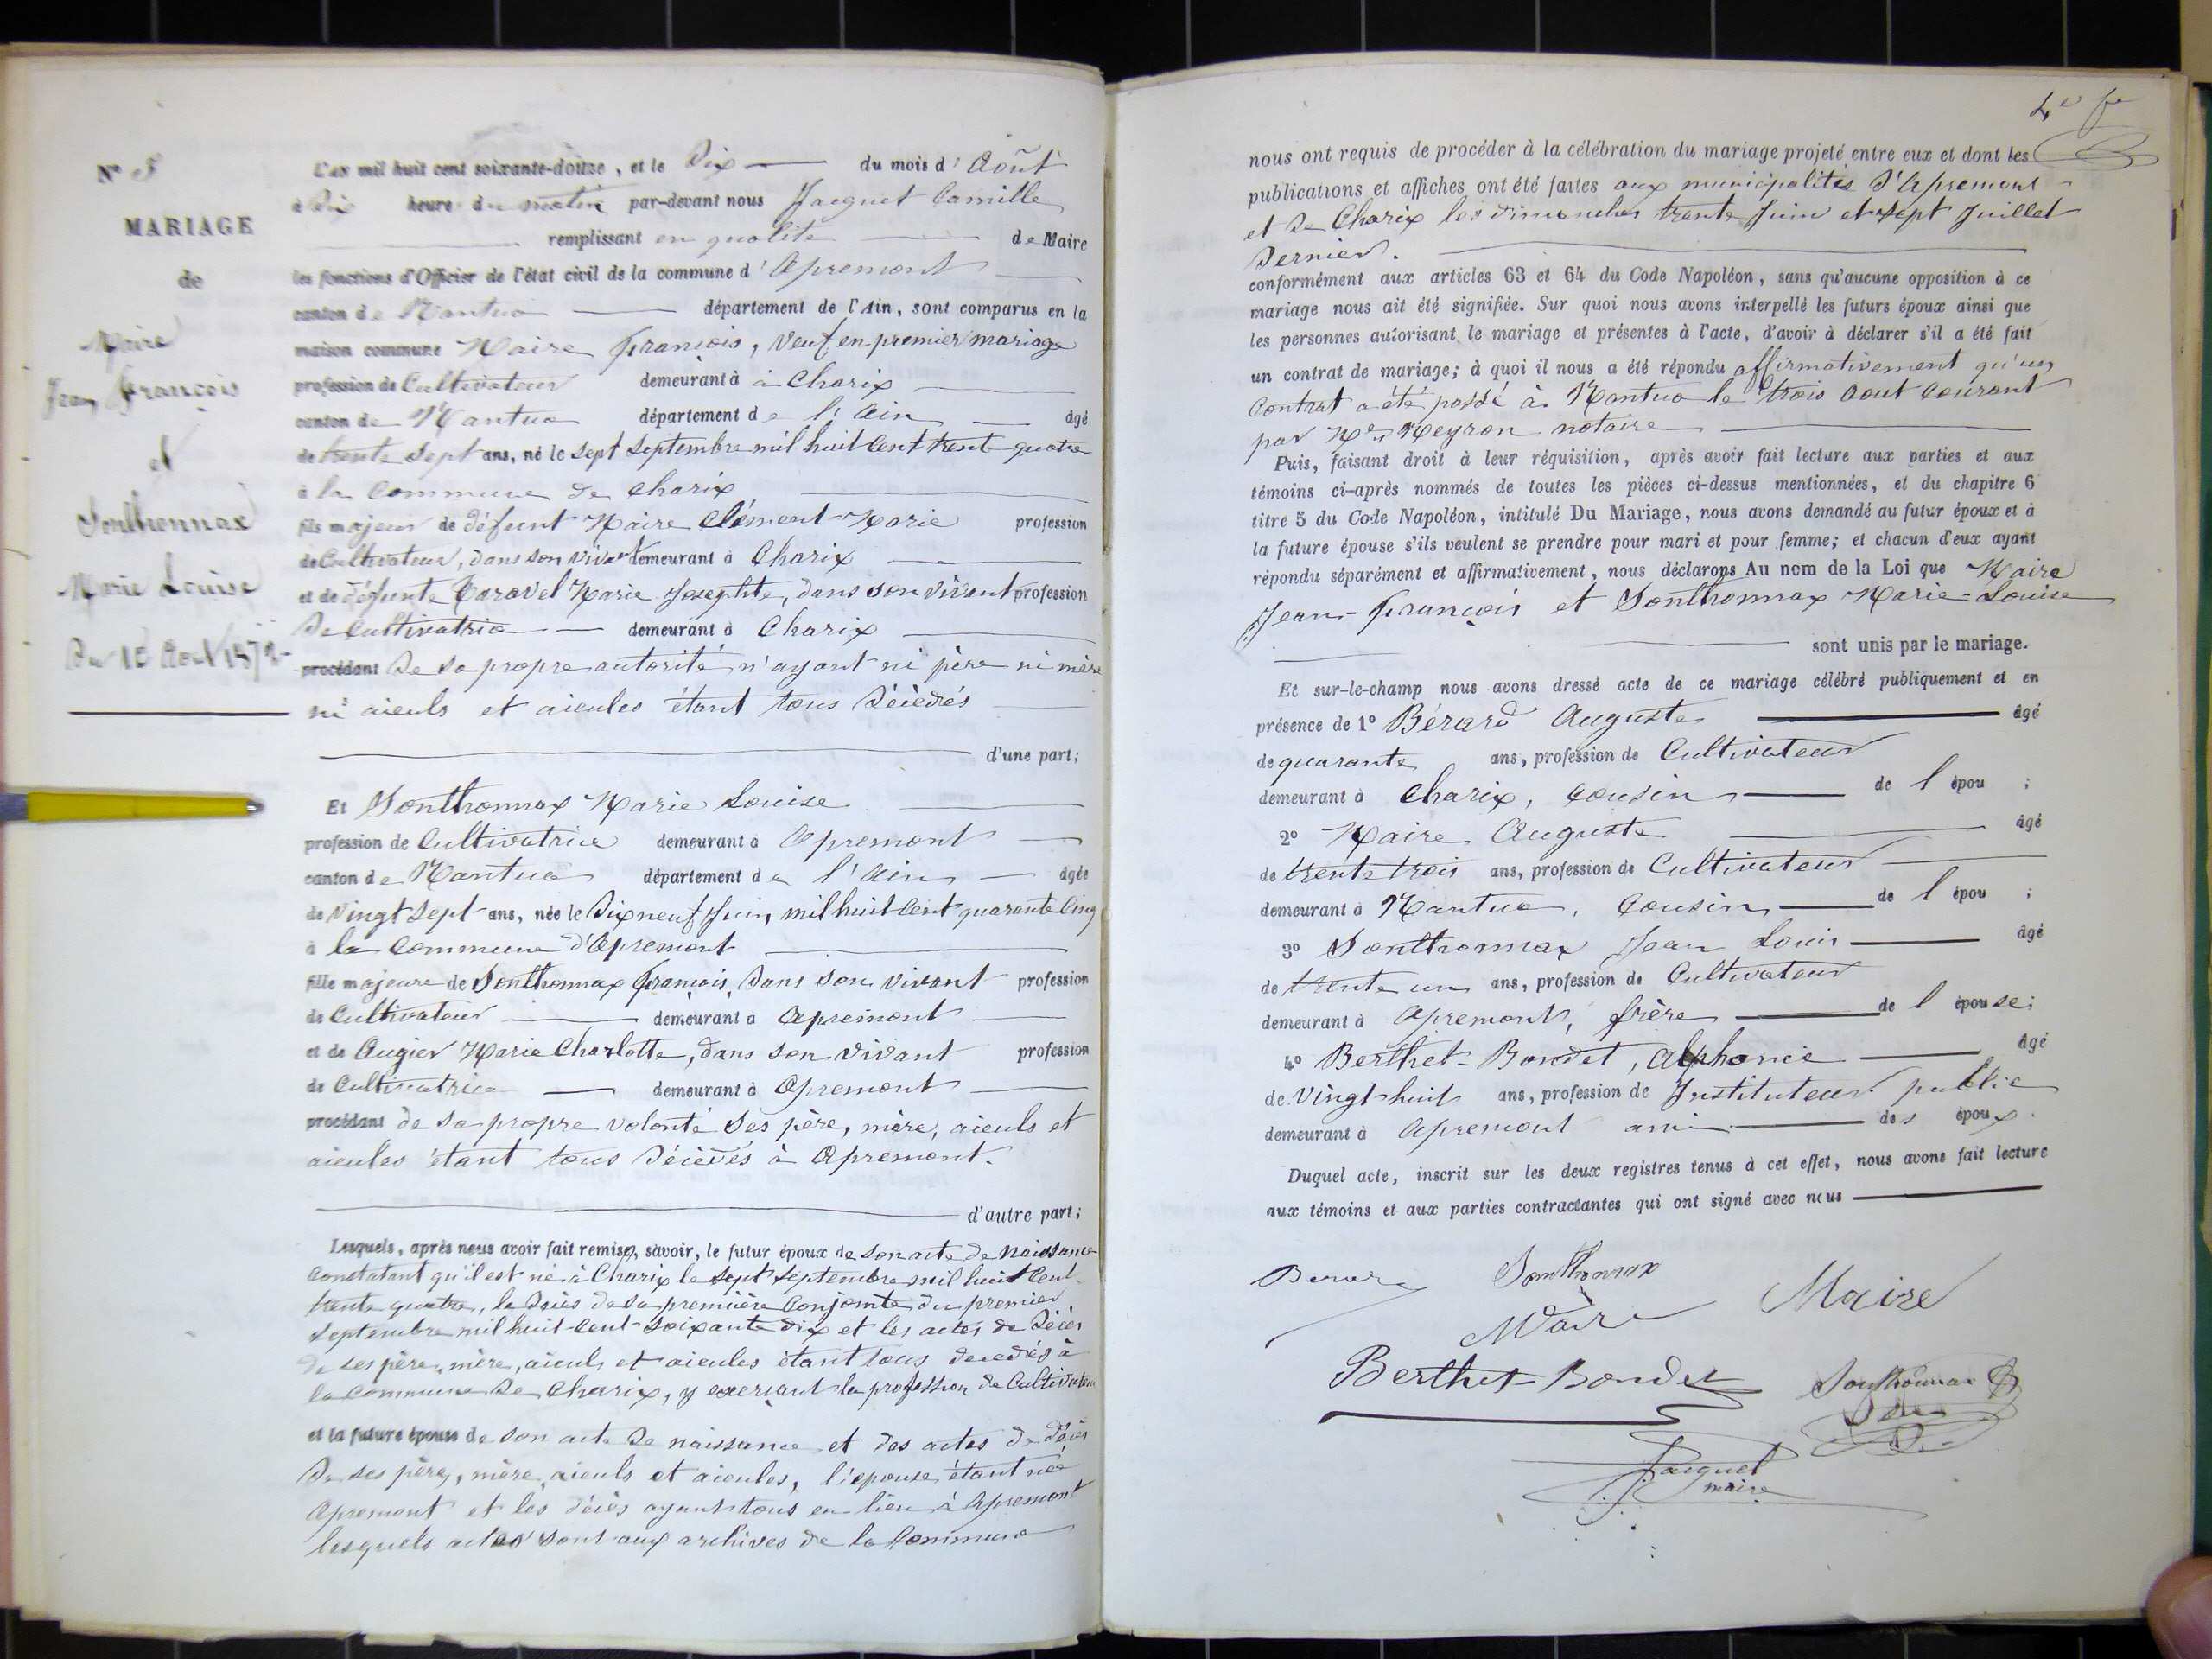 N° 5
MARIAGE
de
Maire
Jean François
et
Sonthonnax
Marie Louise
Du 10 Août 1872
L'an mil huit cent soixante-douze, et le Dix du mois d'Août
à Dix heure du matin par-devant nous Jacquet Camille
remplissant en qualité de Maire
les fonctions d'Officier de l'état civil de la commune d'Apremont
canton de Nantua département de l'Ain, sont comparus en la
maison commune Maire François, veuf en premier mariage
profession de Cultivateur demeurant à à Charix
canton de Nantua département de l'Ain âgé
de trente sept ans, né le sept septembre mil huit cent trente quatre
à la Commune de Charix
fils majeur de défunt Maire Clément Marie profession
de Cultivateur, dans son vivant demeurant à Charix
et de défunte Caravel Marie Josephte, dans son vivant profession
de Cultivatrice demeurant à Charix
procédant de sa propre autorité n'ayant ni père ni mère
ni aieuls et aieules étant tous décédés
d'une part;
Et Sonthonnax Marie Louise
profession de Cultivatrice demeurant à Apremont
canton de Nantua département de l'Ain âgée
de vingt sept ans, née le Dix neuf Juin, mil huit cent quarante cinq
à la Commune d'Apremont
fille majeure de Sonthonnax François, dans son vivant profession
de Cultivateur demeurant à Apremont
et de Augier Marie Charlotte, dans son vivant profession
de Cultivatrice demeurant à Apremont
procédant de sa propre volonté ses père, mère, aieuls et
aieules étant tous décédés à Apremont.
d'autre part;
Lesquels, après nous avoir fait remise, savoir, le futur époux de son acte de naissance
constatant qu'il est né à Charix le sept septembre mil huit cent
trente quatre, le décès de sa première conjointe du premier
septembre mil huit cent soixante dix et les actes de décès
de ses père, mère, aieuls et aieules étant tous decedés à
la commune de Charix, y exerçant la profession de Cultivateur
et la future épouse de son acte de naissance et des actes de décès
de ses père, mère, aieuls et aieules, l'épouse étant née
Apremont et les décès ayant tous eu lieu à Apremont
lesquels actes sont aux archives de la Commune
nous ont requis de procéder à la célébration du mariage projeté entre eux et dont les
publications et affiches ont été faites aux municipalités d'Apremont
et de Charix les dimanches trente Juin et sept Juillet
dernier.
conformément aux articles 63 et 64 du Code Napoléon, sans qu'aucune opposition à ce
mariage nous ait été signifiée. Sur quoi nous avons interpellé les futurs époux ainsi que
les personnes autorisant le mariage et présentes à l'acte, d'avoir à déclarer s'il a été fait
un contrat de mariage; à quoi il nous a été répondu affirmativement qu'un
contrat a été passé à Nantua le trois aout courant
par Me Neyron notaire
Puis, faisant droit à leur réquisition, après avoir fait lecture aux parties et aux
témoins ci-après nommés de toutes les pièces ci-dessus mentionnées, et du chapitre 6
titre 5 du Code Napoléon, intitulé Du Mariage, nous avons demandé au futur époux et à
la future épouse s'ils veulent se prendre pour mari et pour femme; et chacun d'eux ayant
répondu séparément et affirmativement, nous déclarons Au nom de la Loi que Maire
Jean-François et Sonthonnax Marie-Louise
sont unis par le mariage.
Et sur-le-champ nous avons dressé acte de ce mariage célébré publiquement et en
présence de 1° Bérard Auguste âgé
de quarante ans, profession de Cultivateur
demeurant à Charix, cousin de l'épou ;
2° Maire Auguste âgé
de trente trois ans, profession de Cultivateur
demeurant à Nantua, Cousin de l'épou ;
3° Sonthonnax Jean Louis âgé
de trente un ans, profession de Cultivateur
demeurant à Apremont, frère de l'épouse;
4° Berthet-Bondet, Alphonse âgé
de vingt-huit ans, profession de Instituteur public
demeurant à Apremont ami des époux.
Duquel acte, inscrit sur les deux registres tenus à cet effet, nous avons fait lecture
aux témoins et aux parties contractantes qui ont signé avec nous
Berard Sonthonnax
Maire Maire
Berthet-Bondet Sonthonnax
Jacquet
maire